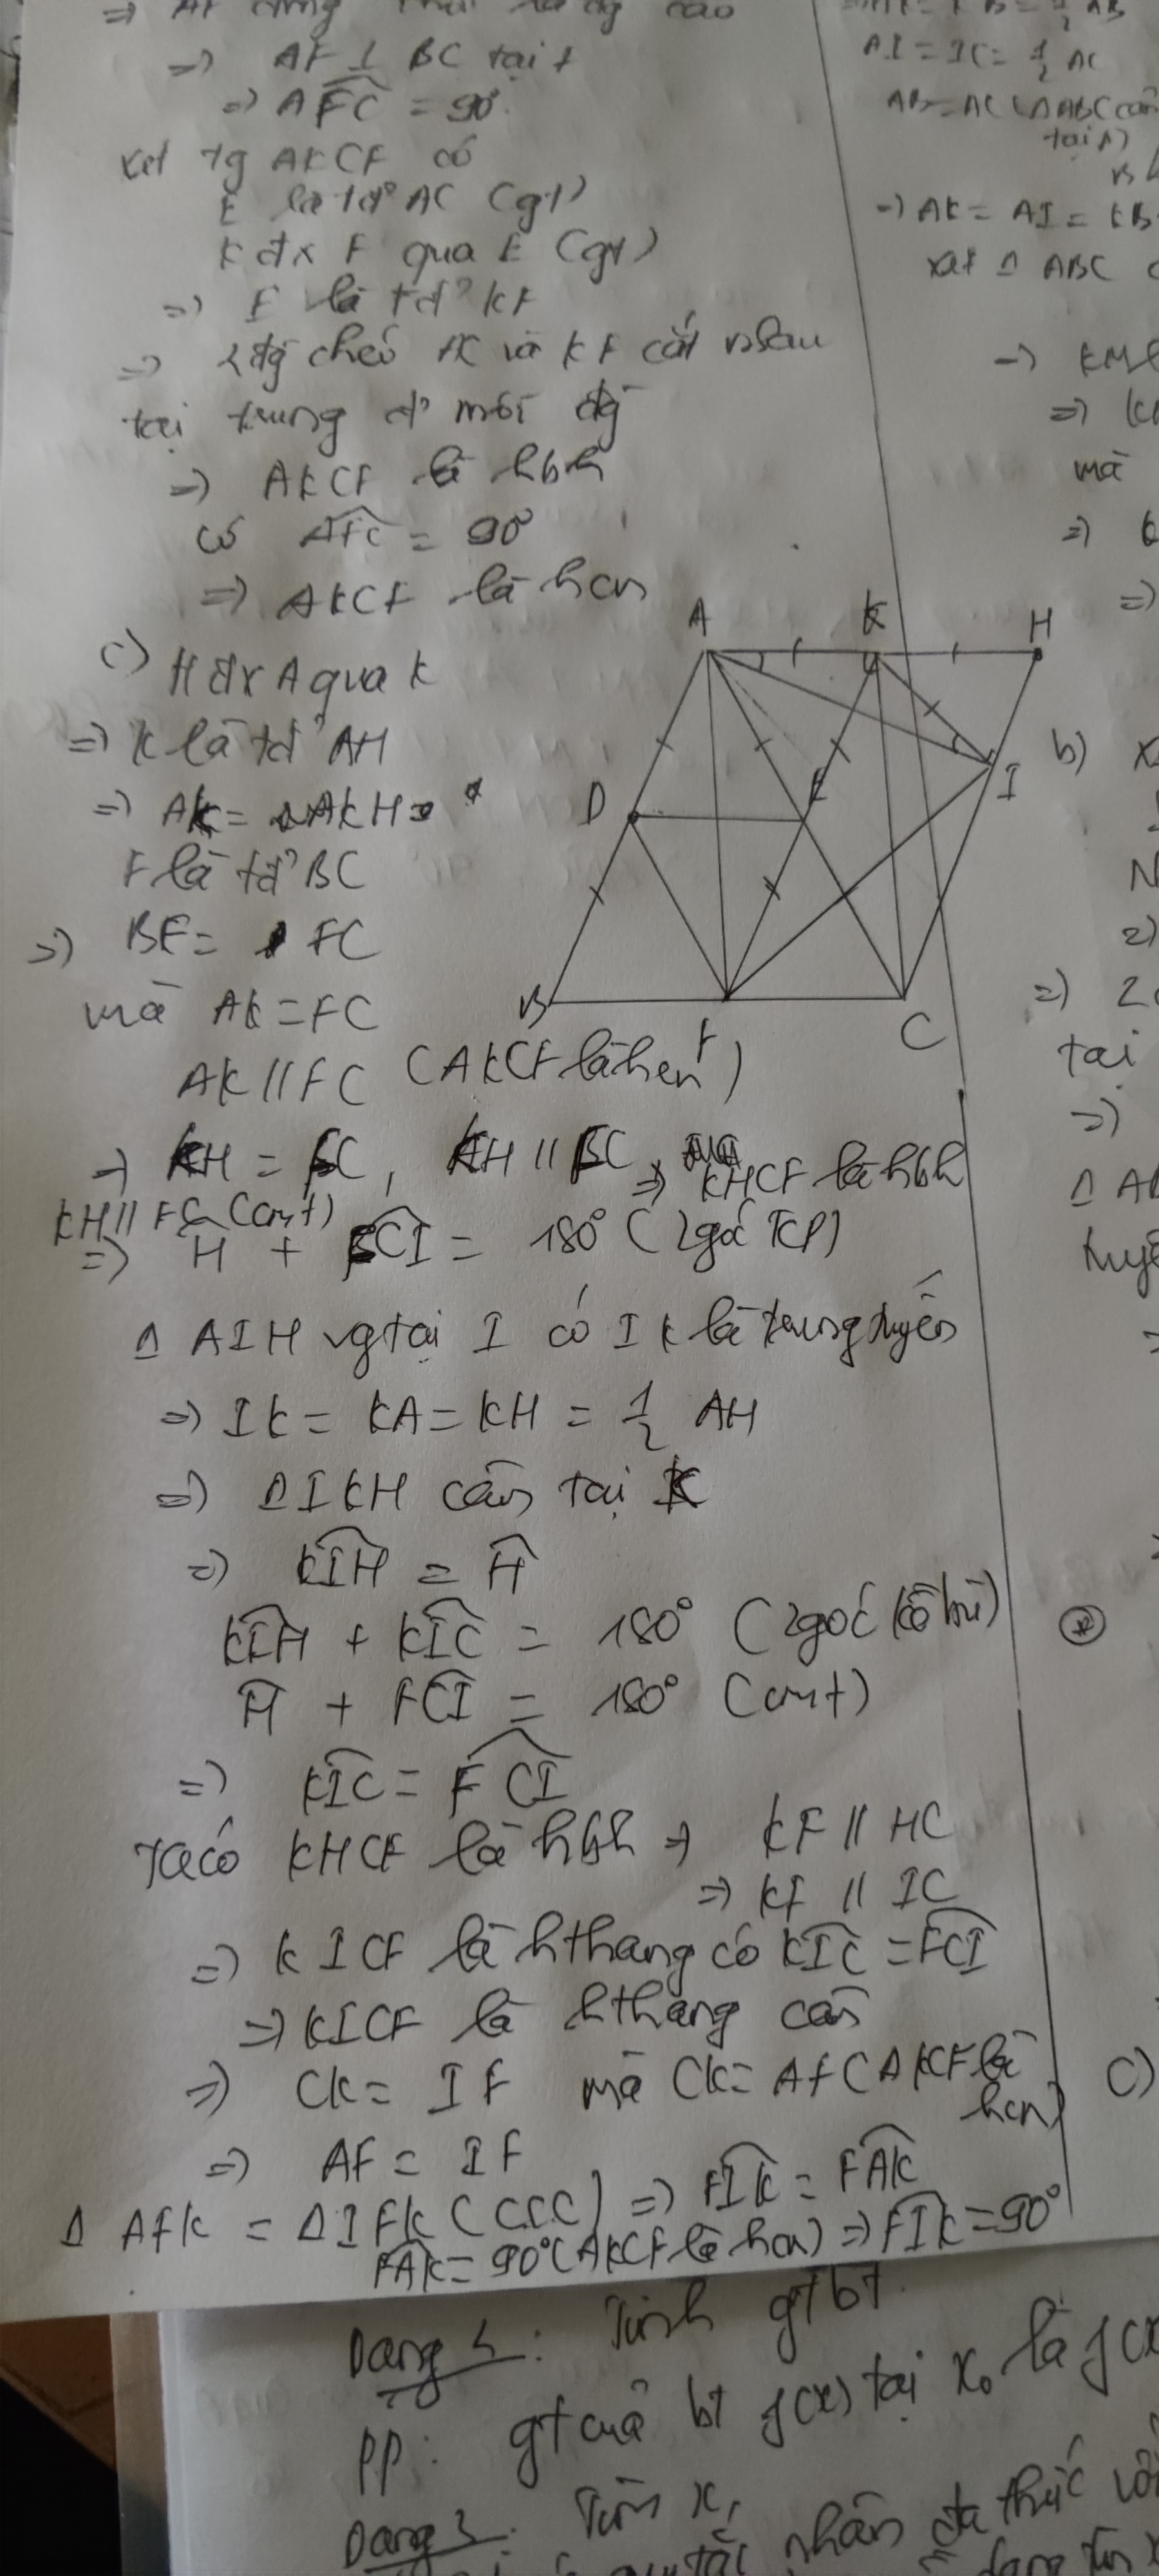 => AF ⊥ BC tại F
=> AFC = 90°
xét tg AKCF có
E là tđ° AC (gt)
K đx F qua E (gt)
=> E là tđ° KF
=> 2 đg chéo AC và KF cắt nhau
tại trung đ° mỗi đg
=> AKCF là hbh
có AFC = 90°
=> AKCF là hcn
c) H đx A qua K
=> K là tđ° AH
=> AK = KH
F là tđ° BC
=> BF = FC
mà AK = FC
AK // FC (AKCF là hcn)
=> KH = FC, KH // FC => KHCF là hbh
KH // FC (cmt)
=> H + FCI = 180° (2 góc TCP)
Δ AIH vg tại I có IK là trung tuyến
=> IK = KA = KH = 1/2 AH
=> Δ IKH cân tại K
=> KIH = H
KIH + KIC = 180° (2 góc kề bù)
H + FCI = 180° (cmt)
=> KIC = FCI
Ta có KHCF là hbh => KF // HC
=> KF // IC
=> KICF là hthang có KIC = FCI
=> KICF là hthang cân
=> CK = IF mà CK = AF (AKCF là
hcn)
=> AF = IF
Δ AFK = Δ IFK (CCC) => FIK = FAK
FAK = 90° (AKCF là hcn) => FIK = 90°
A
K
H
D
E
I
B
F
C
AI = IC = 1/2 AC
AB = AC (Δ ABC cân
tại A)
=> AK = AI = KB
xét Δ ABC
mà
b)
2)
tại
c)
: Tính gt bt
PP: gt của bt f(x) tại x₀ là f(x
Dạng 3: Tìm x,
nhân đa thức với